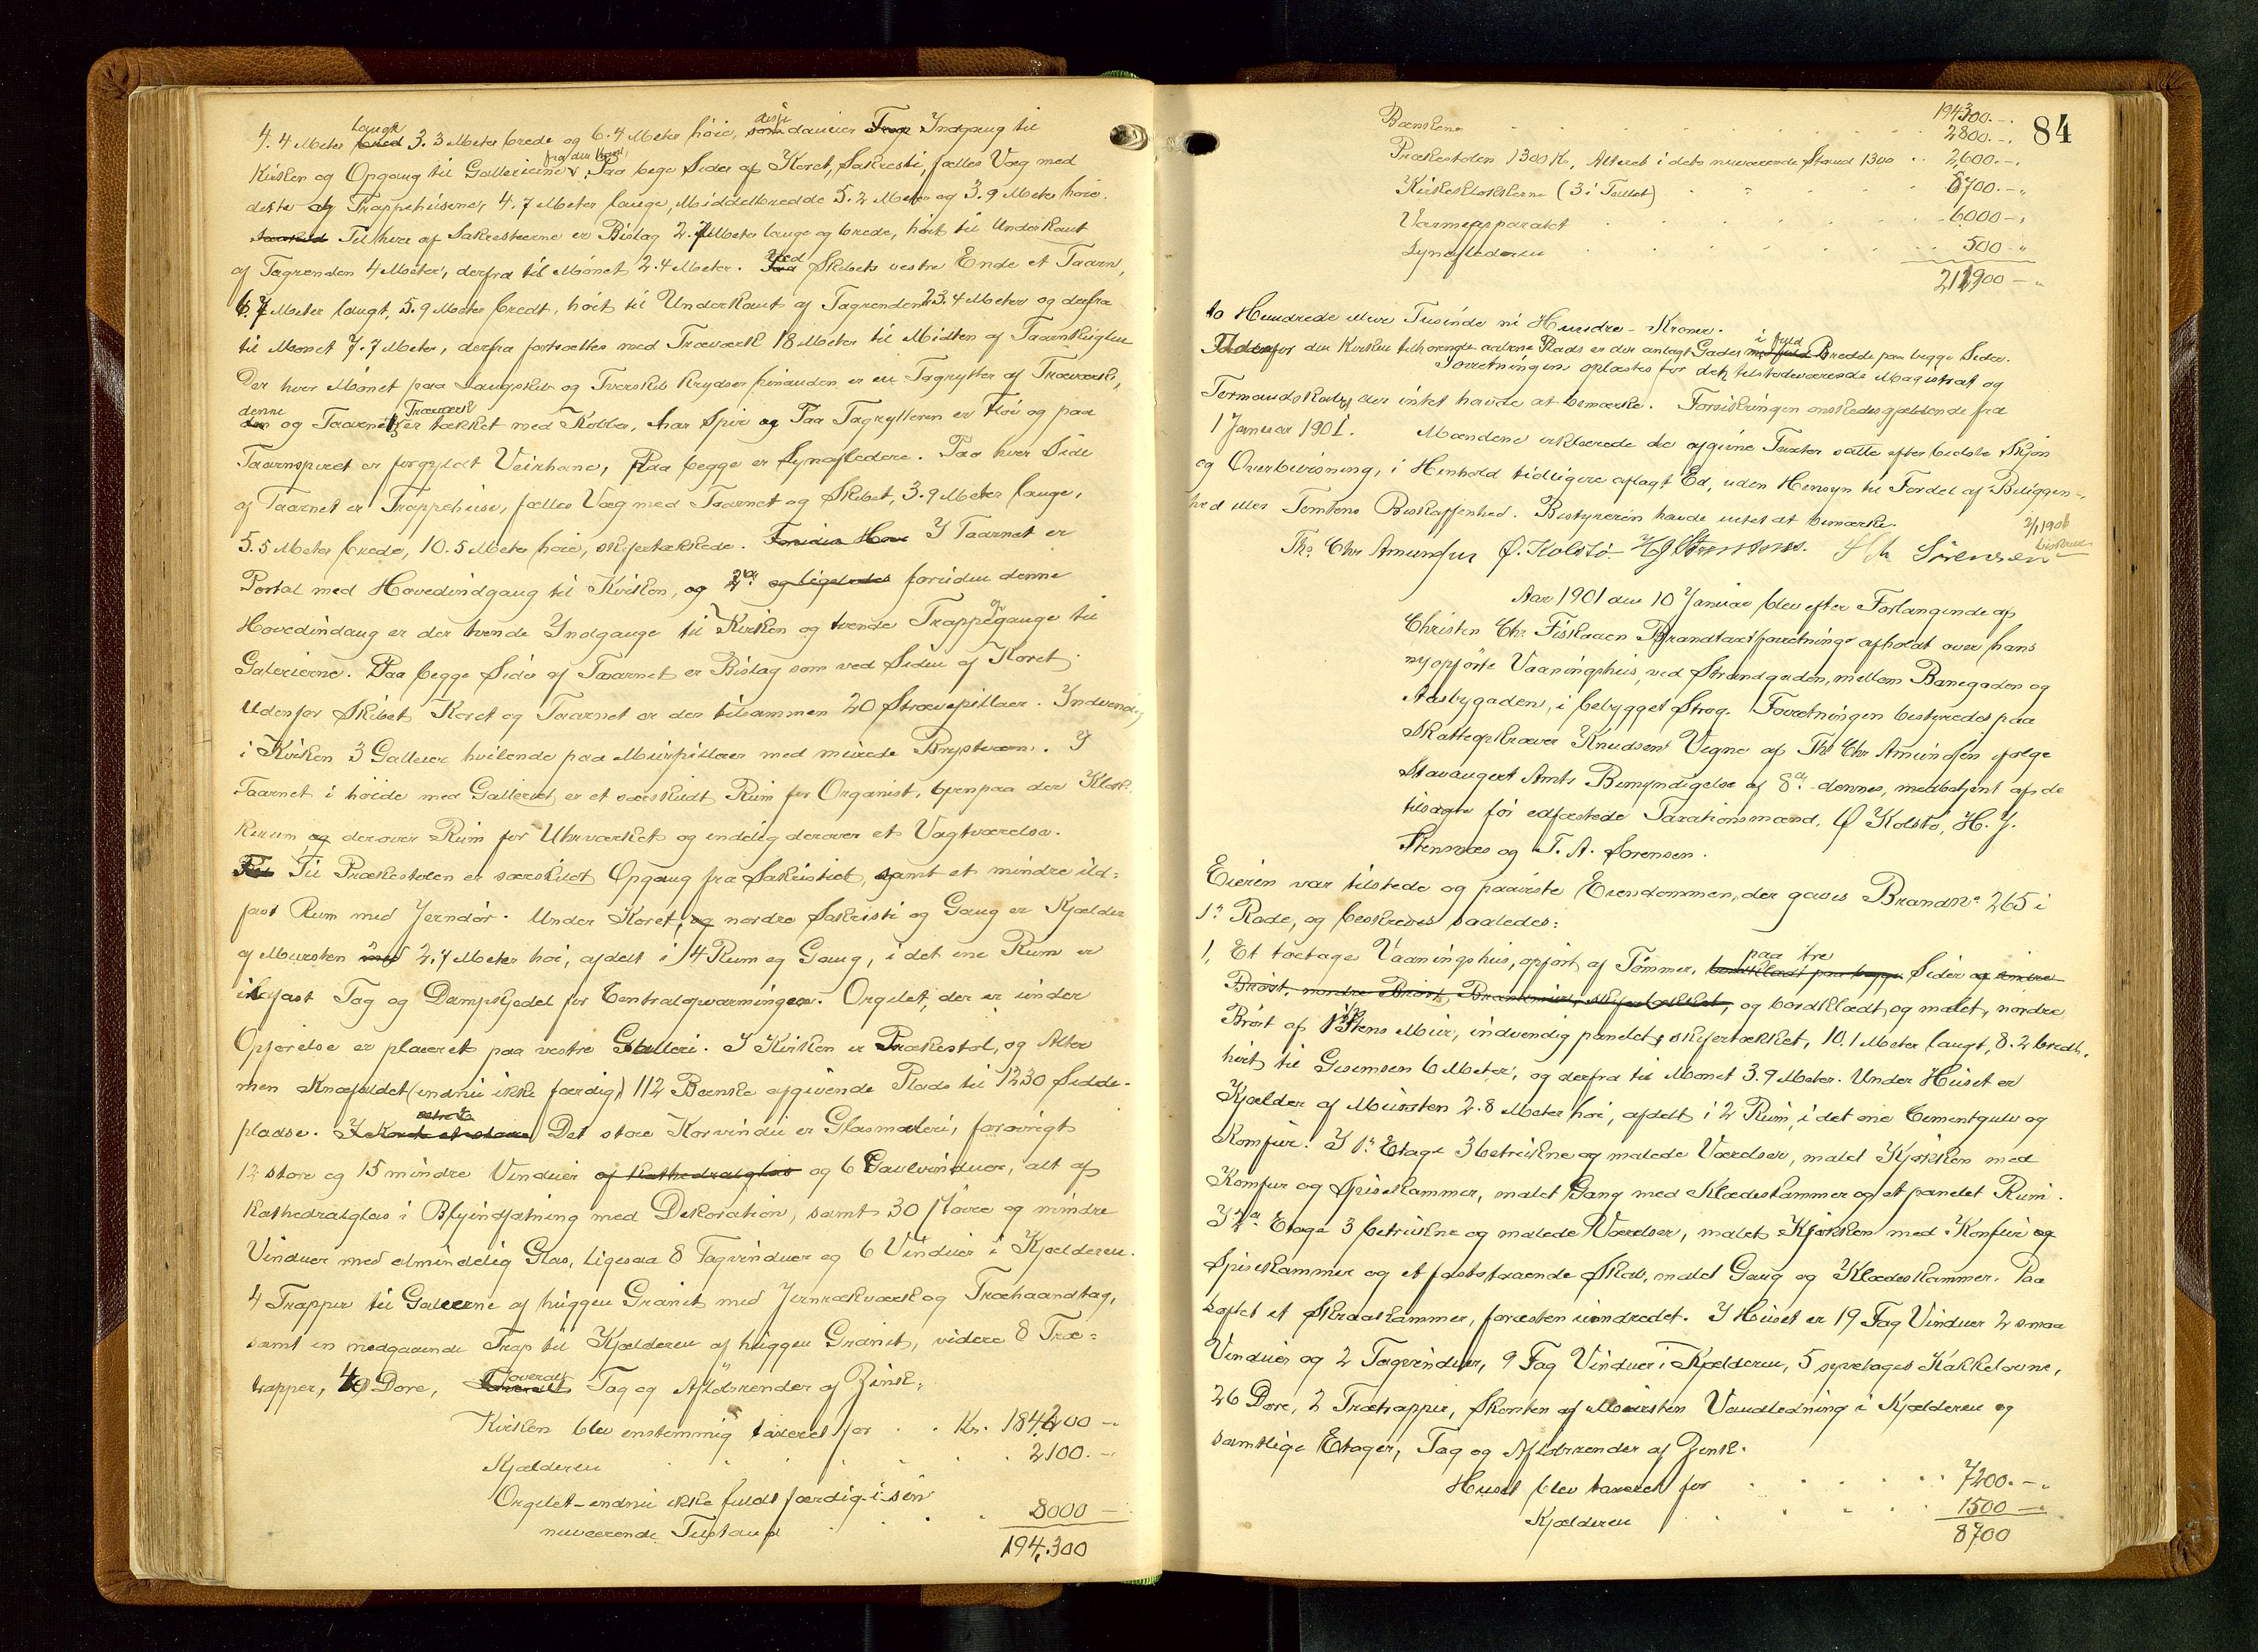 4.4 Meter langt 3.3 Meter brede og 6.4 Meter høie, disse danner Indgang til
Kirken og Opgang til Gallerierne fra der Kored, Paa bege Sider af Koret, Sakresti, fælles Væg med
dette og Trappehusene, 4.7 Meter lange, Middelbredde 5.2 Meter og 3.9 Meter høie.
Til hver af Sakrestierne er Bislag 2.7 Meter lange og brede, høit til Underkant
af Tagrenden 4 Meter, derfra til Mønet 2.4 Meter. Ved Skibets vestre Ende et Taarn,
6.7 Meter langt, 5.9 Meter bredt, høit til Underkant af Tagrenden 23.4 Meter og derfra
til Mønet 7.7 Meter, derfra fortsættes med Træværk 18 Meter til Midten af Taarnkuglen
Der hvor Mønet paa Langskib og Tverskib krydser hinanden er en Tagrytter af Træværk,
denne og Taarnets Træværk er tækket med Kobber, har Spir og Paa Tagrytteren er Fløi og paa
Taarnspiret er forgyldt Veirhane, Paa begge er Lynafledere. Paa hver Side
af Taarnet er Trappehuse, fælles Væg med Taarnet og Skibet, 3.9 Meter lange,
5.5 Meter brede, 10.5 Meter høie, skifertækkede. Foruden Hove I Taarnet er
Portal med Hovedindgang til Kirken, og 2de og ligeledes foruden denne
Hovedindgang er der tvende Indgange til Kirken og tvende Trappegange til
Galerierne. Paa begge Sider af Taarnet er Bislag som ved Siden af Koret.
Udenfor Skibet Koret og Taarnet er der tilsammen 20 Strævepillaer. Indvendig
i Kirken 3 Gallerier hvilende paa Murpillaer med murede Brystværn. I
Taarnet i høide med Galleriet er et særskildt Rum for Organist, ovenpaa der Klok-
kerum og derover Rum for Uhrværket og endelig derover et Vagtværelse.
Til Prækestolen er særskildt Opgang fra Sakristiet, samt et mindre ild-
fast Rum med Jerndør. Under Koret, og nordre Sakristi og Gang er Kjælder
af Mursten 2.7 Meter høi, afdelt i 4 Rum og Gang, i det ene Rum er
ildfast Tag og Dampkjedel for Centralopvarmingen. Orgelet, der er under
Opførelse er placeret paa vestre Galleri. I Kirken er Prækestol, og Alter
men Knæfaldet (endnu ikke færdig) 112 Bænke afgivende Plads til 1230 Sidde-
pladse. Det store Korvindu er Glasmaleri, forøvrigt
12 store og 15 mindre Vinduer af Kathedralglas og 6 Gavlvinduer, alt af
Kathedralglas i Blyindfatning med Dekoration, samt 30 større og mindre
Vinduer med almindelig Glas, ligesaa 8 Tagvinduer og 6 Vinduer i Kjælderen.
4 Trapper til Galerierne af huggen Granit med Jernrækværk og Træhaandtag,
samt en nedgaaende Trap til Kjælderen af huggen Granit, videre 8 Træ-
trapper, 49 Døre, overalt Tag og Afløbsrender af Zink.
Kirken blev enstemmig taxeret for . . Kr. 184,200 -
Kjælderen 2100. -
Orgelet - endnu ikke fuldt færdig - i sin
nuværende Tilstand 8000 -
194,300
84
194300. -
Bænkene 2800. -
Prækestolen 1300 Kr, Alteret i dets nuværende Stand 1300 .. 2600. -
Kirkeklokkerne (3 i Tallet) 5700. -
Varmeapparatet 6000 -
Lynaflederen 500 -
211900 -
to Hundrede elleve Tusinde ni Hundre - Kroner.
Udenfor den Kirken tilhørende aabne Plads er der anlagt Gader i fuld Bredde paa begge Sider.
Forretningen oplæstes for det tilstedeværende Magistrat og
Formandskab, der intet havde at bemærke. Forsikringen ønskedes gjældende fra
1 Januar 1901. Mændene erklærede de afgivne Taxter satte efter bedste Skjøn
og Overbevisning, i Henhold tidligere aflagt Ed, uden Hensyn til Fordel af Beliggen-
hed eller Tomtens Beskaffenhed. Bestyreren havde intet at bemærke.
2/1 1906
Ths Chr Amundsen Ø. Kolstø HJStensnæs. T A Sørensen
Aar 1901 den 10 Januar blev efter Forlangende af
Christen Chr Fiskaaen Brandtaxtforretning afholdt over hans
nyopførte Vaaningshus, ved Strandgaden, mellem Banegaden og
Aasbygaden, i bebygget Strøg. Forretningen bestyredes paa
Skatteopkræver Knudsens Vegne af Ths Chr Amundsen ifølge
Stavangert Amts Bemyndigelse af 8de dennes, medbetjent af de
tilsagte før edfæstede Taxationsmænd, Ø Kolstø, H. J.
Stensnæs og T. A. Sørensen.
Eieren var tilstede og paaviste Eiendommen, der gaves Brandno 265 i
1ste Rode, og beskreves saaledes:
1, Et toetages Vaaningshus, opført af Tømmer, paa tre Sider og søndre
Brøst, nordre Brøst, Brandmur, skifertækket, og bordklædt og malet, nordre
Brøst af 1½ Stens Mur, indvendig panelet, skifertækket, 10.1 Meter langt, 8.2 bredt,
høit til Gesimsen 6 Meter, og derfra til Mønet 3.9 Meter. Under Huset er
Kjælder af Mursten 2.8 Meter høi, afdelt i 2 Rum, i det ene Cementgulv og
Komfur. I 1ste Etage 3 betrukne og malede Værelser, malet Kjøkken med
Komfur og Spisekammer, malet Gang med Klædeskammer og et panelet Rum.
I 2den Etage 3 betrukne og malede Værelser, malet Kjøkken med Komfur og
Spisekammer og et faststaaende Skab, malet Gang og Klædeskammer. Paa
Loftet et Skraakammer, foresten uindredet. I Huset er 19 Fag Vinduer 2 smaa
Vinduer og 2 Tagvinduer, 9 Fag Vinduer i Kjælderen, 5 syvetages Kakkelovne,
26 Døre, 2 Trætrapper, Skorsten af Mursten Vandledning i Kjælderen og
samtlige Etager, Tag og Afløbsrender af Zink.
Huset blev taxeret for 7200. -
Kjælderen 1500 -
8700